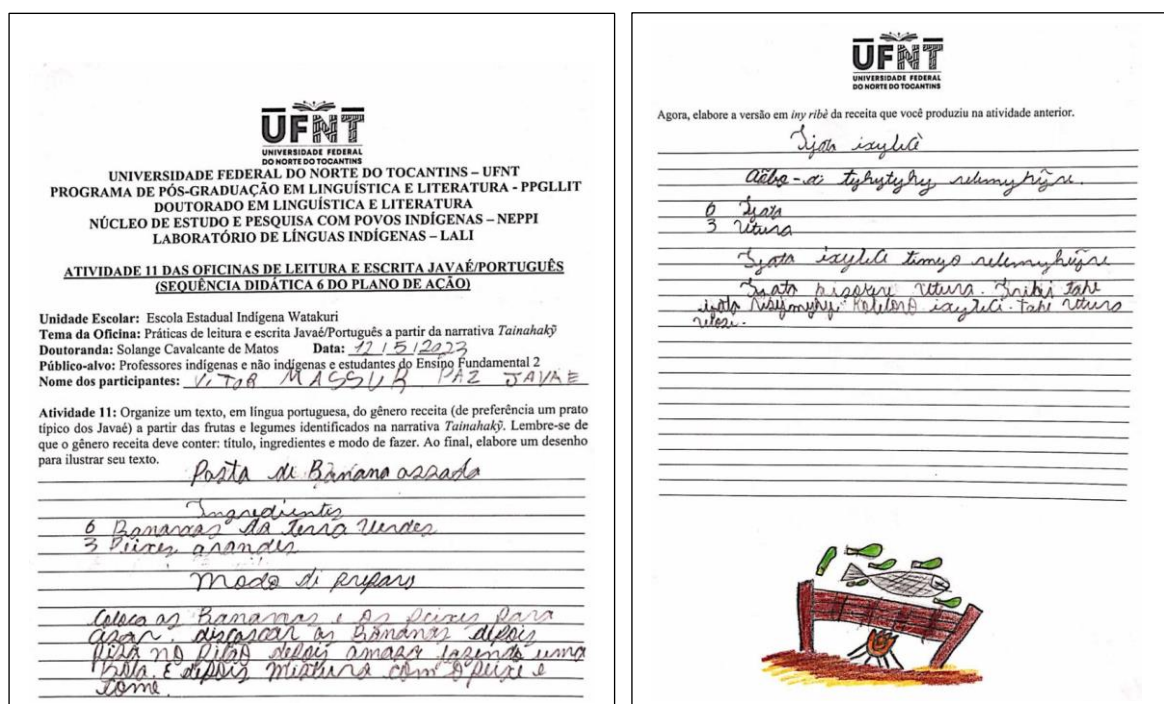 UFNT
UNIVERSIDADE FEDERAL
DO NORTE DO TOCANTINS
UNIVERSIDADE FEDERAL DO NORTE DO TOCANTINS – UFNT
PROGRAMA DE PÓS-GRADUAÇÃO EM LINGUÍSTICA E LITERATURA - PPGLLIT
DOUTORADO EM LINGUÍSTICA E LITERATURA
NÚCLEO DE ESTUDO E PESQUISA COM POVOS INDÍGENAS – NEPPI
LABORATÓRIO DE LÍNGUAS INDÍGENAS – LALI
ATIVIDADE 11 DAS OFICINAS DE LEITURA E ESCRITA JAVAÉ/PORTUGUÊS
(SEQUÊNCIA DIDÁTICA 6 DO PLANO DE AÇÃO)
Unidade Escolar: Escola Estadual Indígena Watakuri
Tema da Oficina: Práticas de leitura e escrita Javaé/Português a partir da narrativa Tainahakỹ
Doutoranda: Solange Cavalcante de Matos Data: 12/5/2023
Público-alvo: Professores indígenas e não indígenas e estudantes do Ensino Fundamental 2
Nome dos participantes: VITOR MASSUR PAZ JAVAE
Atividade 11: Organize um texto, em língua portuguesa, do gênero receita (de preferência um prato
típico dos Javaé) a partir das frutas e legumes identificados na narrativa Tainahakỹ. Lembre-se de
que o gênero receita deve conter: título, ingredientes e modo de fazer. Ao final, elabore um desenho
para ilustrar seu texto.
Pasta de Banana assada
Ingredientes
6 Bananas da terra Verdes
3 Peixes grandes
Modo di preparo
Coloca as Bananas e os Peixes para
asar. discascar as Bananas depois
Pisa no Pilão depois amasa fazendo uma
Bola. E depois mistura com o peixe e
come.
UFNT
UNIVERSIDADE FEDERAL
DO NORTE DO TOCANTINS
Agora, elabore a versão em iny ribè da receita que você produziu na atividade anterior.
Ijata
tyhytyhy
6 Ijata
3 Utura
Ijata
Ijata utura. tahe
tahe utura